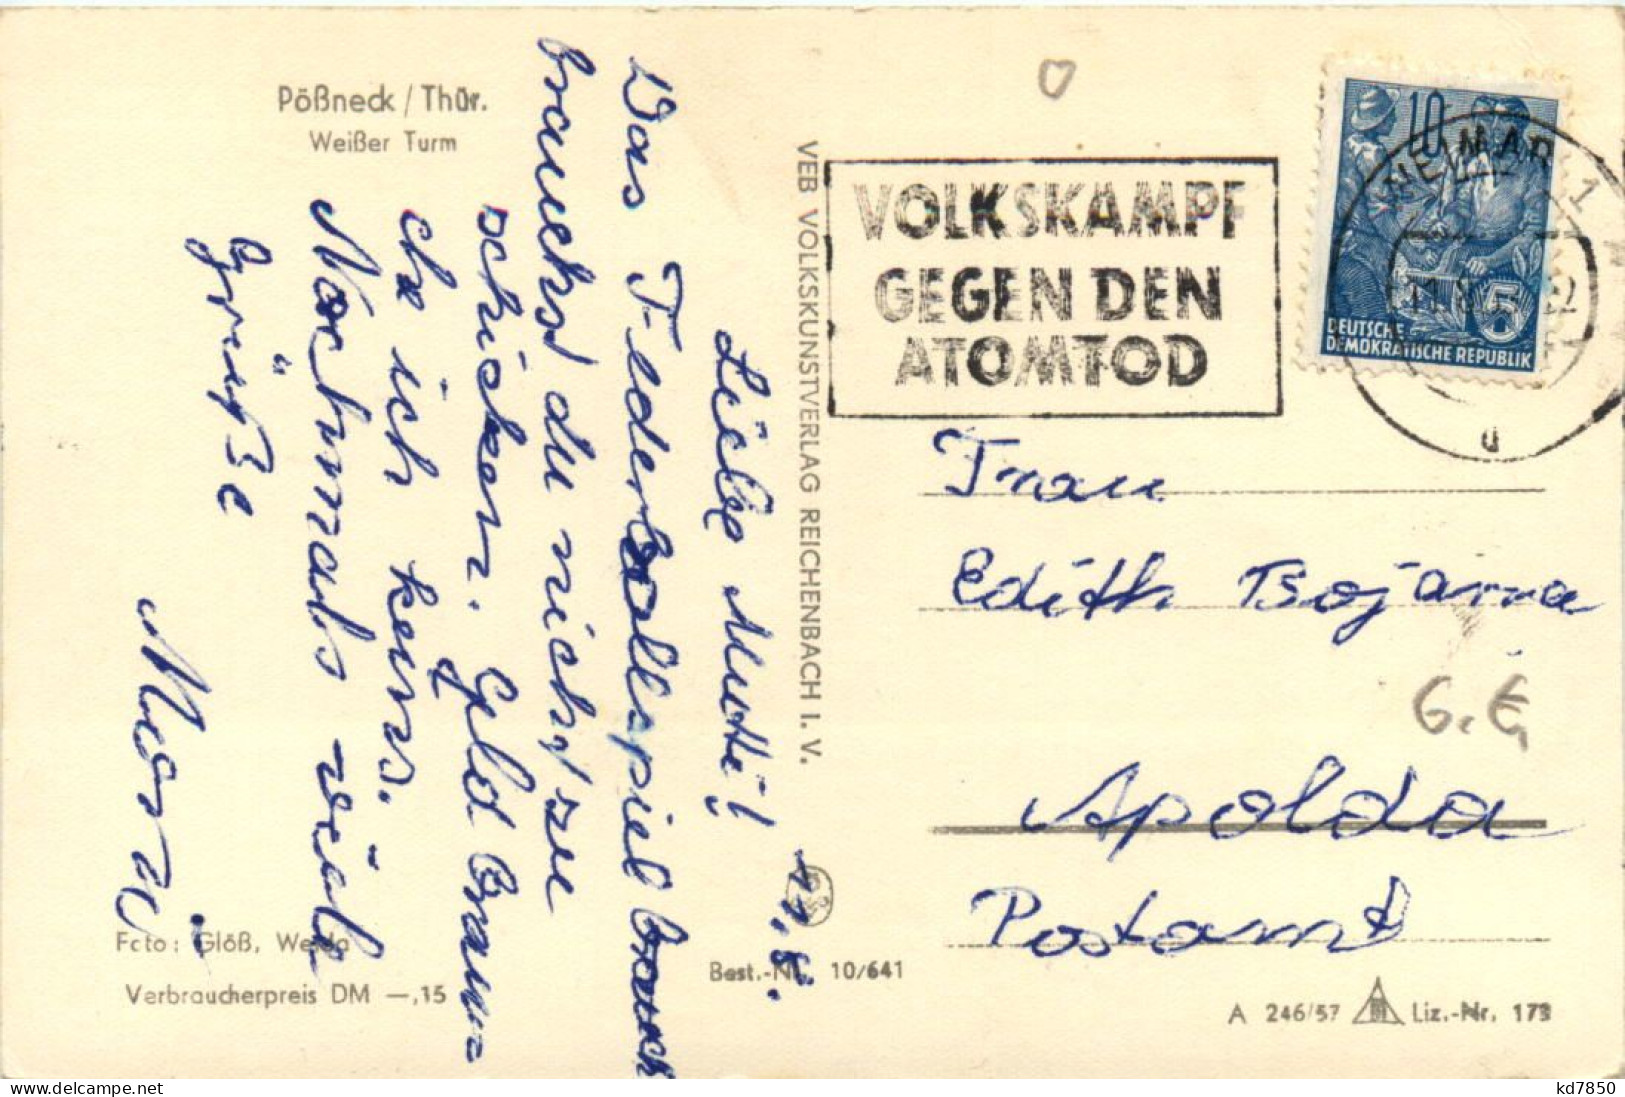 Pößneck / Thür.
Weißer Turm
11.8.
Liebe Mutti!
Das Federballspiel brauch
brauchst du nicht, zu
schicken. Geld brau-
che ich keins.
Nochmals viele
Grüße
VEB VOLKSKUNSTVERLAG REICHENBACH I. V.
Foto: Glöß, Weida
Verbraucherpreis DM —,15
Best.-Nr. 10/641
VOLKSKAMPF
GEGEN DEN
ATOMTOD
WEIMAR 1
u
10
5
DEUTSCHE
DEMOKRATISCHE REPUBLIK
Frau
Edith
Apolda
Postamt
A 246/57
Liz.-Nr. 173
kd7850